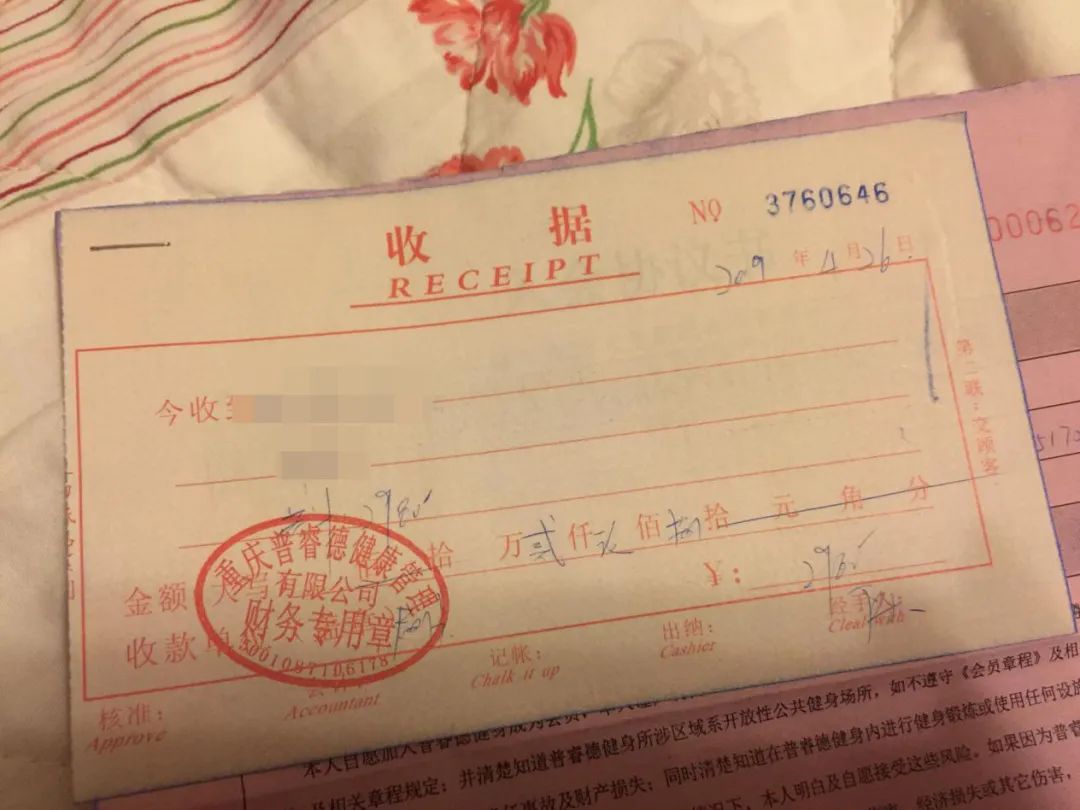 收 据
RECEIPT
NO 3760646
2019 年 11 月 26 日
00062
今收到
第二联:交顾客
517
共计 2980
金额 大写 拾 万 贰 仟 玖 佰 捌 拾 元 角 分
¥: 2980
收款单
重庆普睿德健康管理
有限公司
财务专用章
5001087106178
核准:
Approve
Accountant
记帐:
Chalk it up
出纳:
Cashier
经手
Cleal with
本人自愿加入普睿德健身成为会员,本人
及相关章程规定;并清楚知道普睿德健身所涉区域系开放性公共健身场所,如不遵守《会员章程》及相
事故及财产损失;同时清楚知道在普睿德健身内进行健身锻炼或使用任何设施
情况下,本人明白及自愿接受这些风险。如果因为普睿
经济损失或其它伤害,